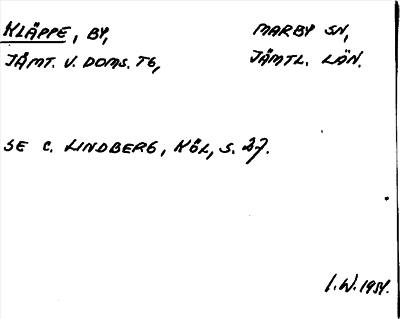 KLÄPPE, BY, MARBY SN,
JÄMT. V. DOMS. TG, JÄMTL. LÄN.
SE C. LINDBERG, KÖL, S. 27.
I.W. 1954.